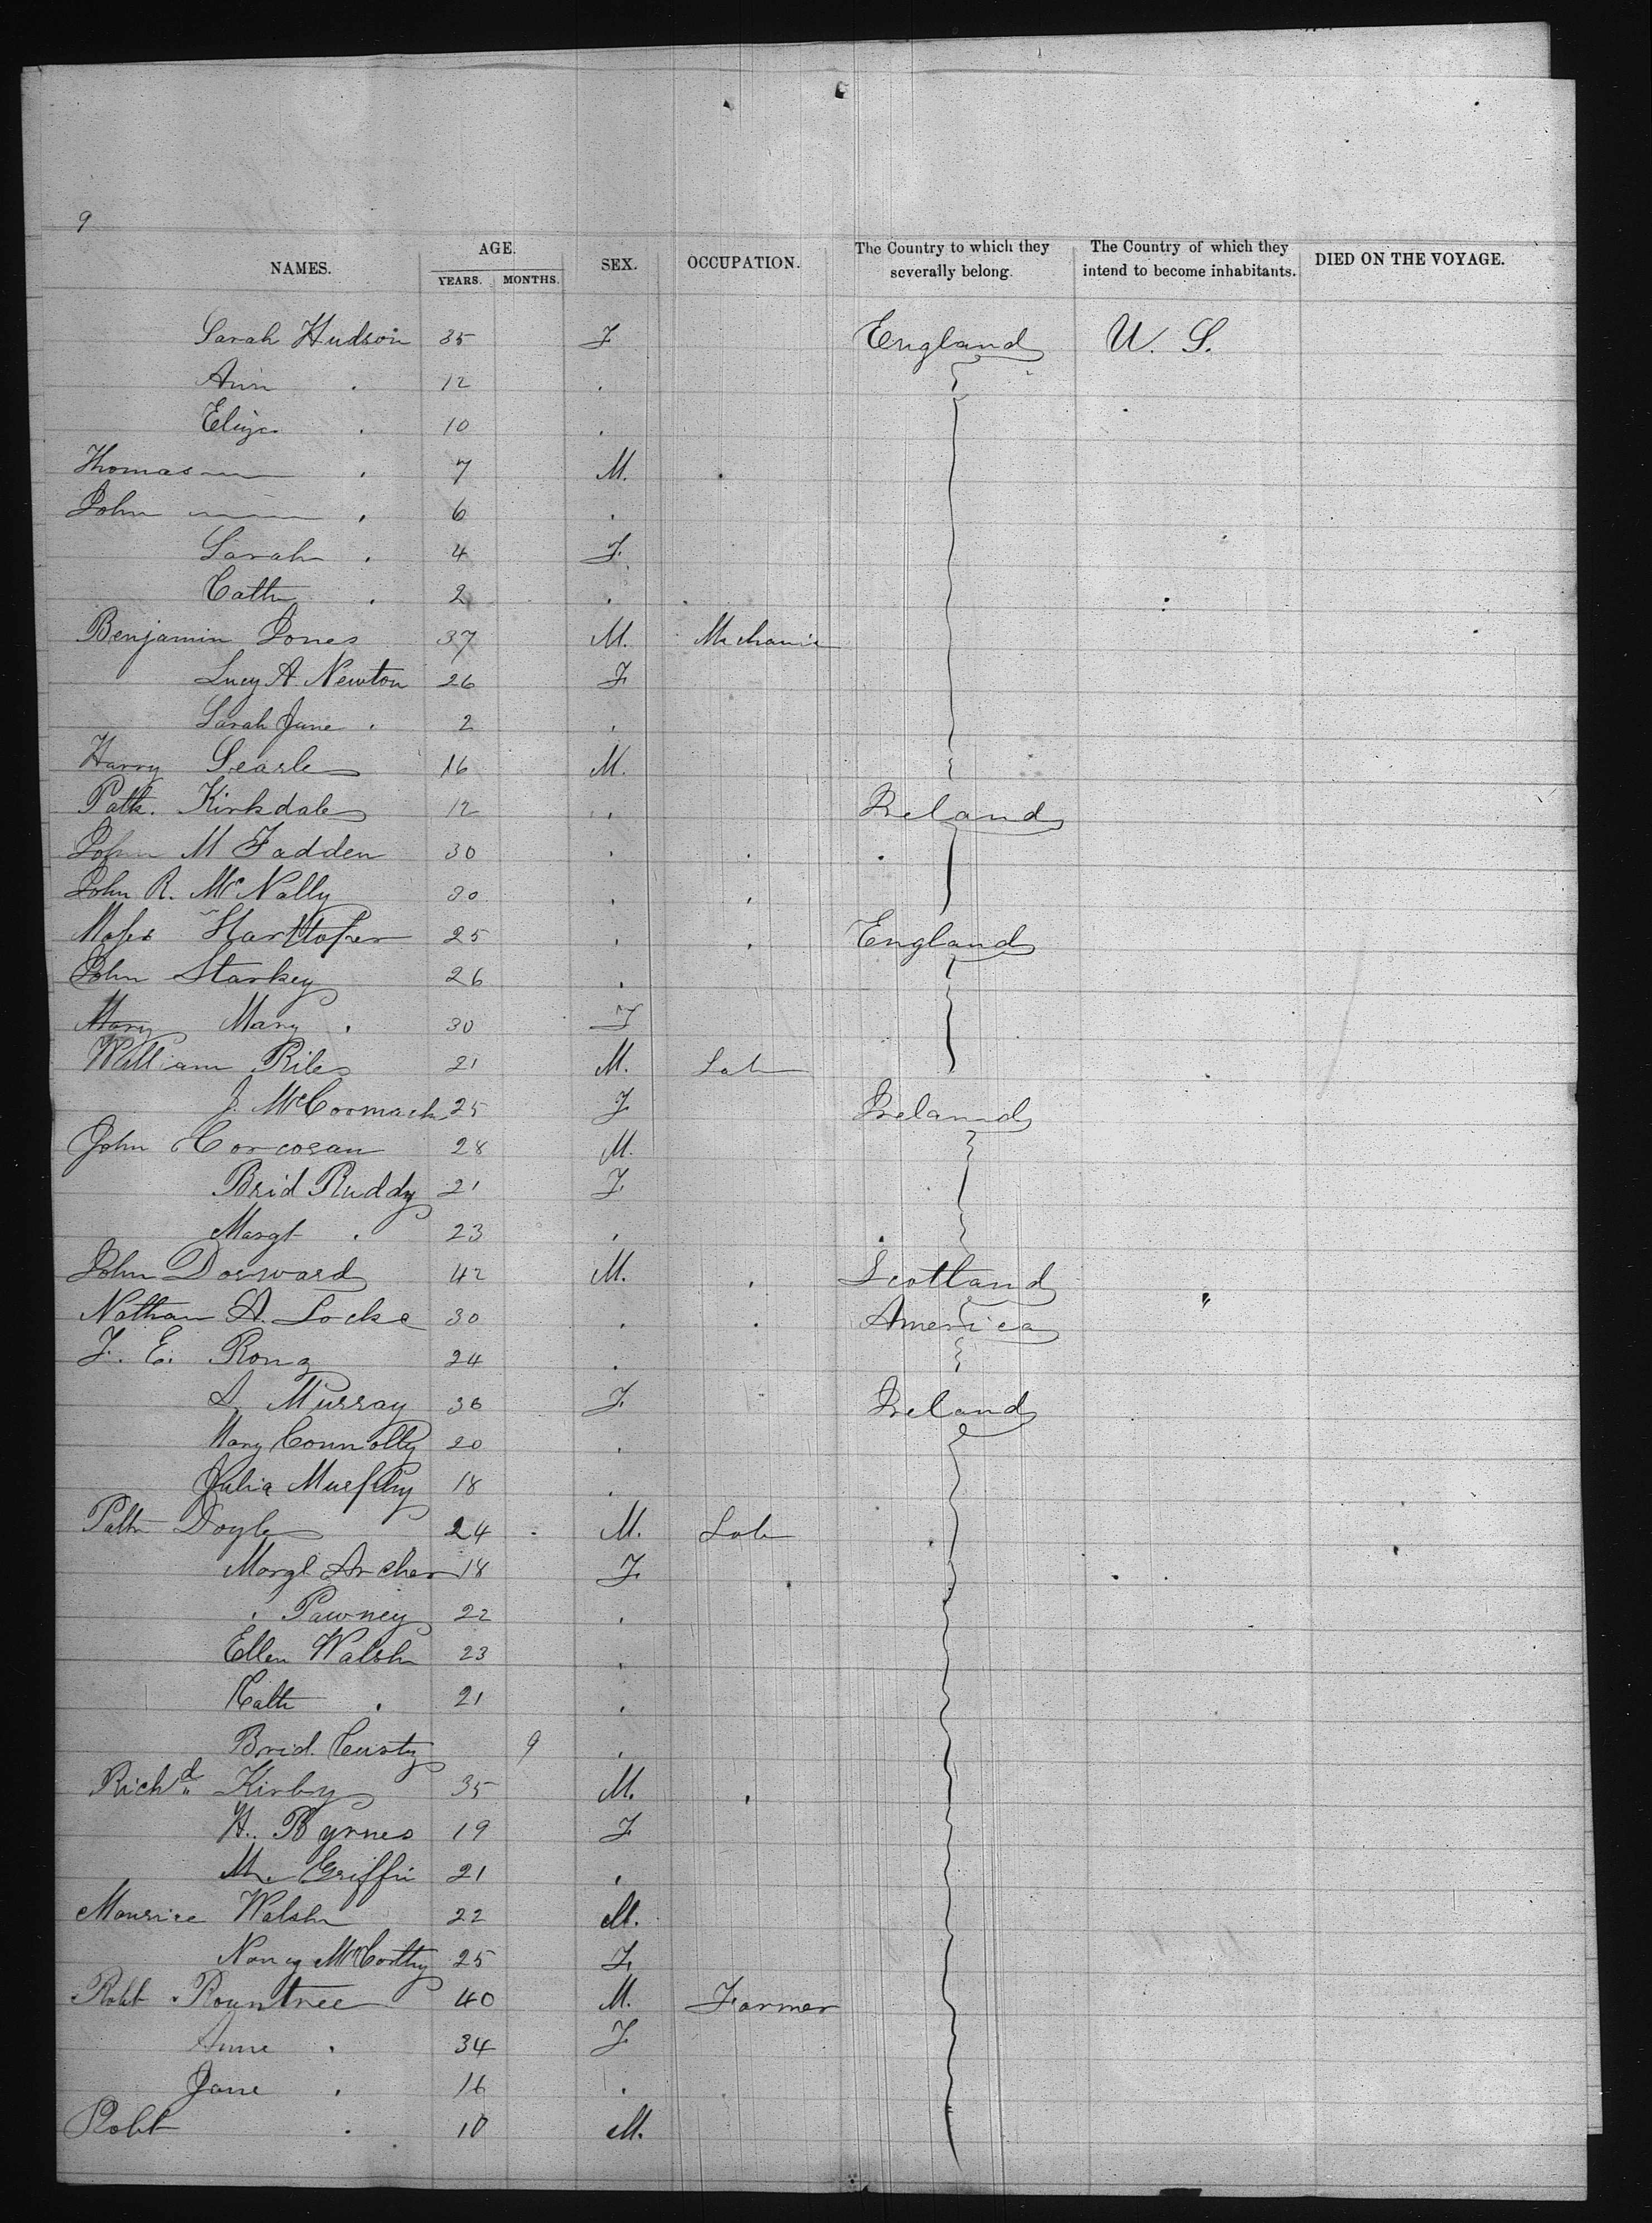 9
NAMES. AGE. YEARS. MONTHS. SEX. OCCUPATION. The Country to which they severally belong. The Country of which they intend to become inhabitants. DIED ON THE VOYAGE.
Sarah Hudson 35 F England U. S.
Ann . 12 .
Eliza . 10 .
Thomas . 7 M.
John . 6 .
Sarah . 4 F.
Cath . 2 .
Benjamin Jones 37 M. Mechanic
Lucy A. Newton 26 F
Sarah Jane . 2 .
Harry Searle 16 M.
Patk. Kirkdale 12 . Ireland
John M Fadden 30 . .
John R. McNally 30 . .
Moses 25 . . England
John Starkey 26 .
Mary Mary . 30 F
William Riles 21 M. Lab
J. McCormack 25 F Ireland
John Corcoran 28 M.
Brid Ruddy 21 F
Margt . 23 .
John Dorward 42 M. . Scotland "
Nathan A. Locke 30 . . America
J. E. 24 .
S. Murray 36 F. Ireland
Mary Connolly 20 .
Julia Murphy 18 .
Patk Doyle 24 M. Lab
Margt Archer 18 F.
. Pawney 22 .
Ellen Walsh 23 .
Cath . 21 .
Brid. Custy 9 .
Richd. Kirby 35 M. .
H. Byrnes 19 F
M. Griffin 21 .
Maurice Walsh 22 M.
Nancy McCarthy 25 F.
Robt Rountree 40 M. Farmer
Anne . 34 F
Jane . 16 .
Robt . 10 M.